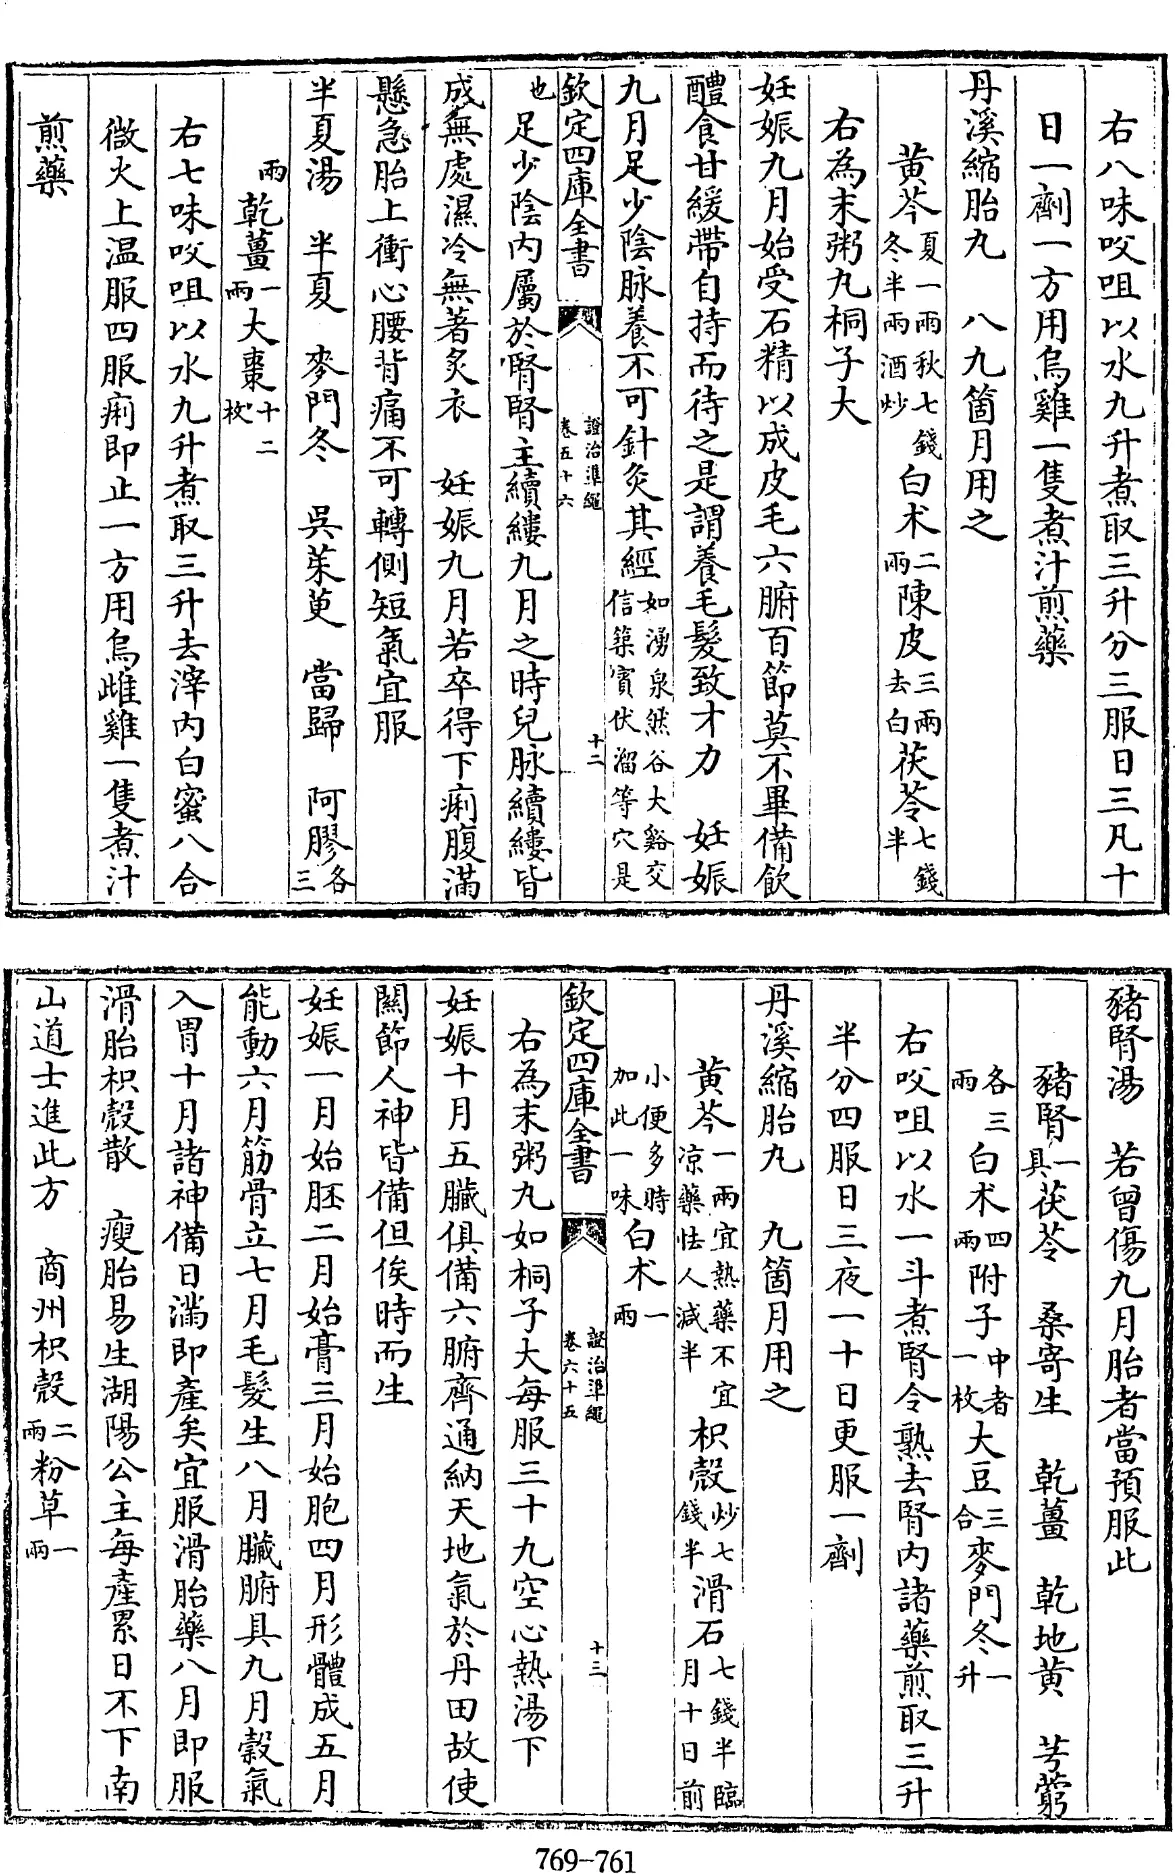 右八味㕮咀以水九升煮取三升分三服日三凡十
日一劑一方用烏雞一隻煮汁煎藥
丹溪縮胎丸　八九箇月用之
黄芩夏一兩秋七錢冬半兩酒炒白术二兩陳皮三兩去白茯苓七錢半
右為末粥丸桐子大
妊娠九月始受石精以成皮毛六腑百節莫不畢備飲
醴食甘緩帶自持而待之是謂養毛髮致才力　妊娠
九月足少陰脉養不可針灸其經如湧泉然谷大谿交信築賓伏溜等穴是
欽定四庫全書
證治準繩
卷五十六
十二
也足少陰内屬於腎腎主續縷九月之時兒脉續縷皆
成無處濕冷無著炙衣　妊娠九月若卒得下痢腹滿
懸急胎上衝心腰背痛不可轉側短氣宜服
半夏湯　半夏　麥門冬　吳茱萸　當歸　阿膠各三
兩乾薑一兩大棗十二枚
右七味㕮咀以水九升煮取三升去滓内白蜜八合
微火上温服四服痢即止一方用烏雌雞一隻煮汁
煎藥
豬腎湯　若曾傷九月胎者當預服此
豬腎一具茯苓　桑寄生　乾薑　乾地黄　芎藭
各三兩白术四兩附子中者一枚大豆三合麥門冬一升
右㕮咀以水一斗煮腎令熟去腎内諸藥煎取三升
半分四服日三夜一十日更服一劑
丹溪縮胎丸　九箇月用之
黄芩一兩宜熱藥不宜凉藥怯人減半枳殼炒七錢半滑石七錢半臨月十日前
小便多時加此一味白术一兩
欽定四庫全書
證治準繩
卷六十五
十三
右為末粥丸如桐子大每服三十丸空心熱湯下
妊娠十月五臟俱備六腑齊通納天地氣於丹田故使
關節人神皆備但俟時而生
妊娠一月始胚二月始膏三月始胞四月形體成五月
能動六月筋骨立七月毛髮生八月臟腑具九月穀氣
入胃十月諸神備日滿即產矣宜服滑胎藥八月即服
滑胎枳殼散　瘦胎易生湖陽公主每產累日不下南
山道士進此方　商州枳殼二兩粉草一兩
769-761